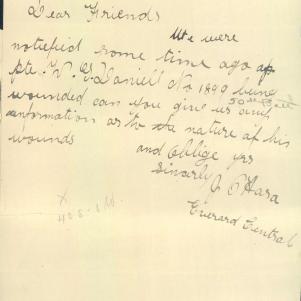 Dear Friends
We were
notefied some time ago of
Pte. V. G. Daniell No 1899 being
50th Batt
wounded can you give us any
enformation as to the nature of his
wounds
and Oblige yrs
Sincerly J. O'Hara
Everard Central
X